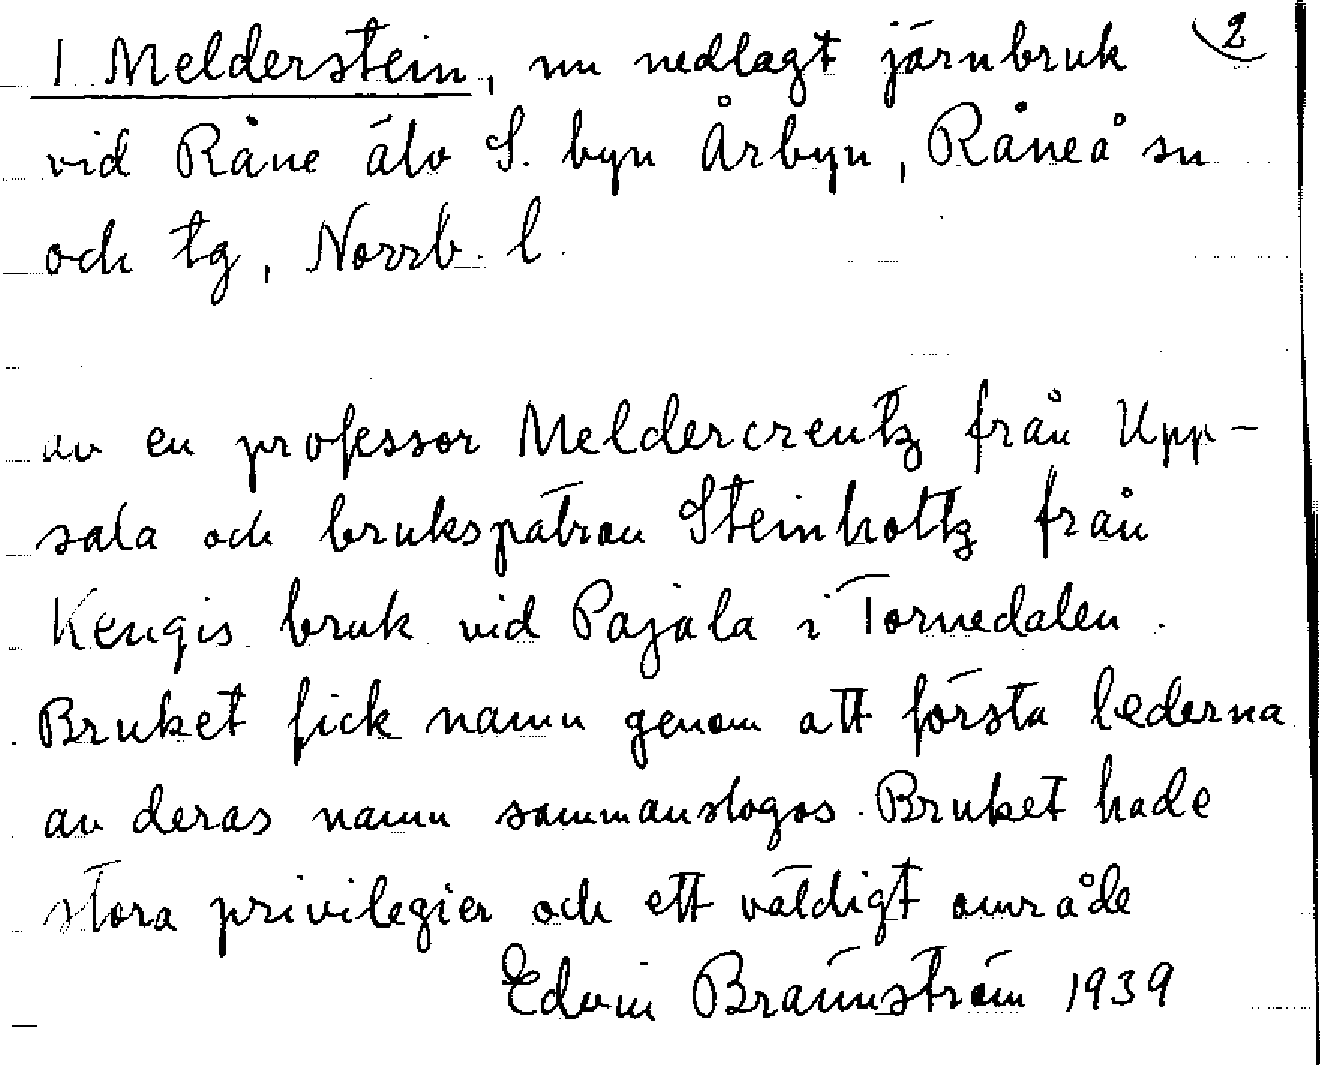 1 Melderstein, nu nedlagt järnbruk 2
vid Råne älv S. byn Årbyn, Råneå sn
och tg, Norrb. l.
av en professor Meldercreutz från Upp-
sala och brukspatron Steinholtz från
Kengis bruk vid Pajala i Tornedalen.
Bruket fick namn genom att första lederna
av deras namn sammanslogos. Bruket hade
stora privilegier och ett väldigt område
Edvin Brännström 1939